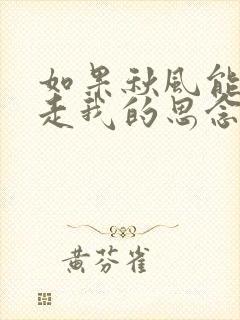 如果秋风能
走我的思念
黄芬雀